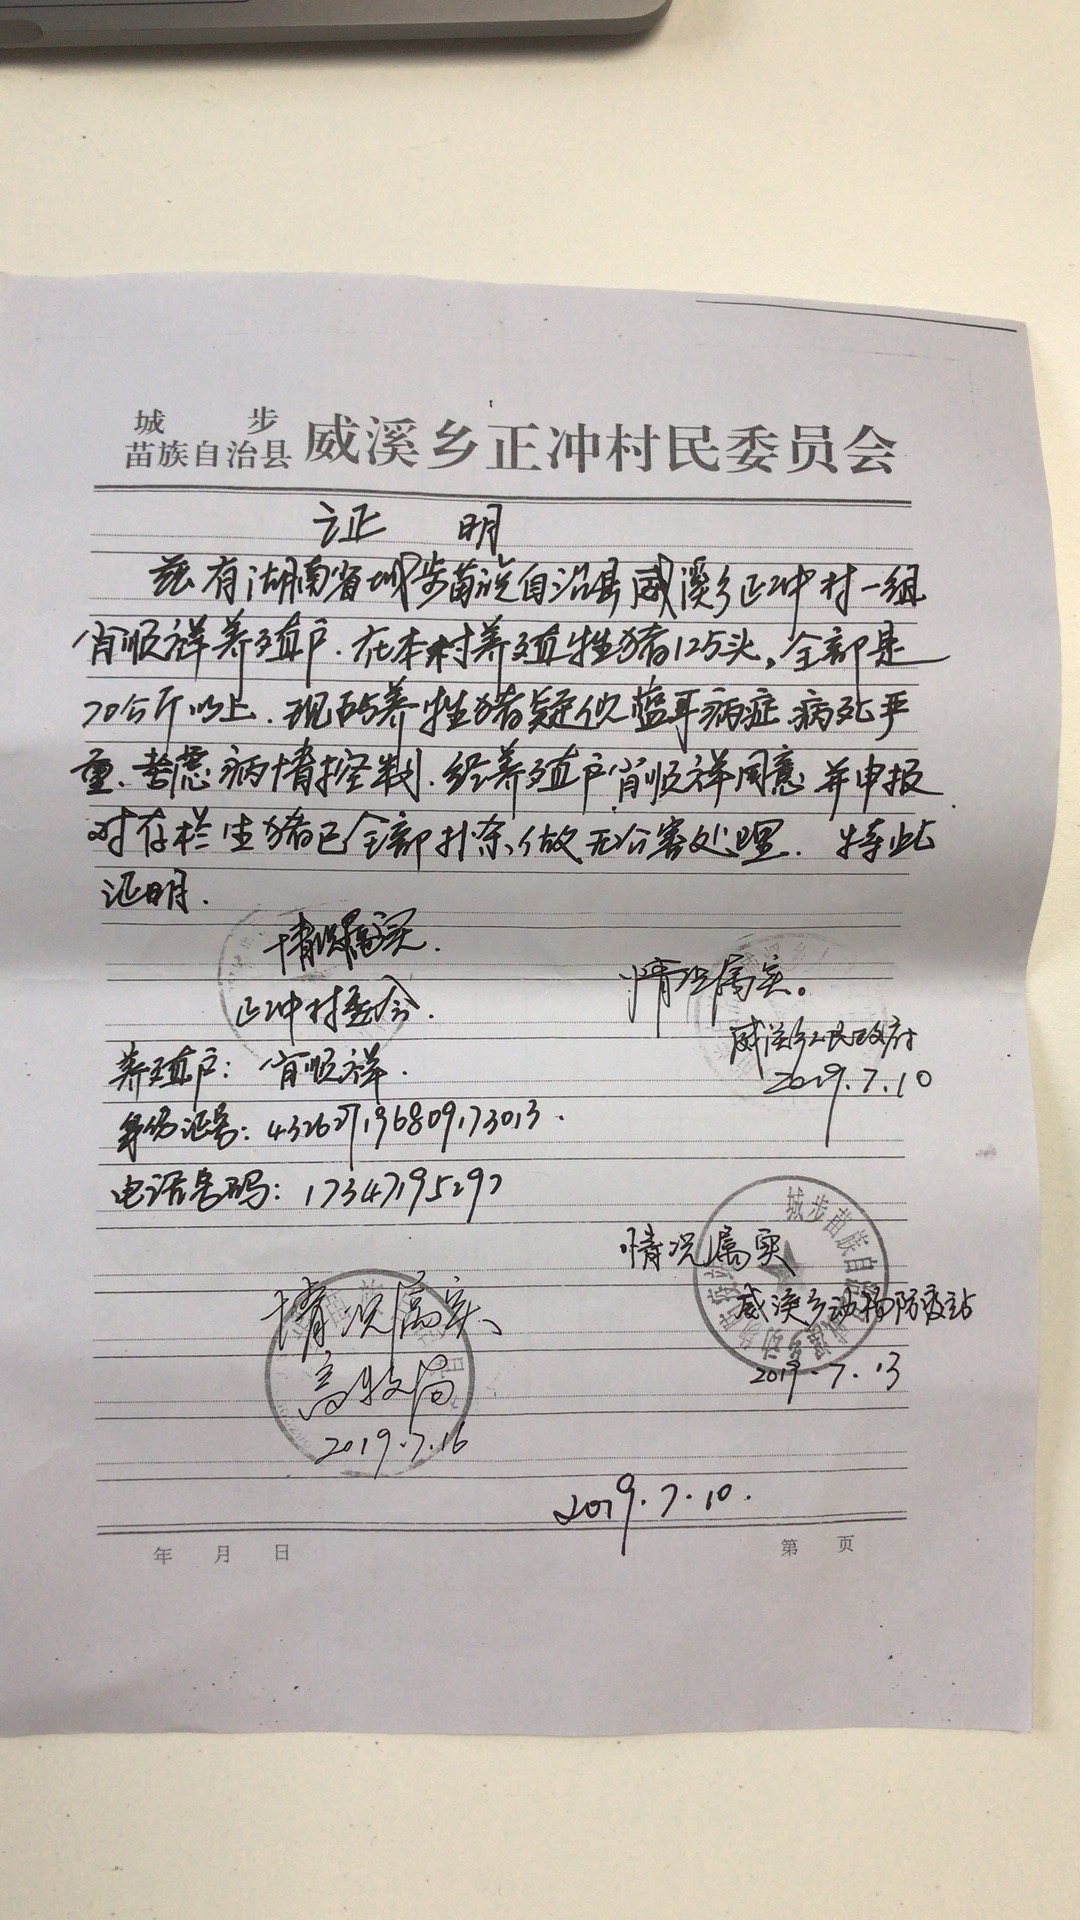 城步
苗族自治县 威溪乡正冲村民委员会
证明
兹有湖南省城步苗族自治县威溪乡正冲村一组
肖顺祥养殖户.在本村养殖牲猪125头。全部是
70公斤以上.现所养牲猪疑似蓝耳病症 病死严
重.考虑病情控制.经养殖户肖顺祥同意 并申报
对存栏生猪已全部扑杀.做无公害处理. 特此
证明.
情况属实.
正冲村委会.
情况属实。
威溪乡人民政府
2019.7.10
养殖户: 肖顺祥.
身份证号: 432627196809173013.
电话号码: 17347195297
情况属实
威溪乡动物防疫站
2019.7.13
情况属实、
畜牧局
2019.7.16
2019.7.10.
年 月 日
第 页